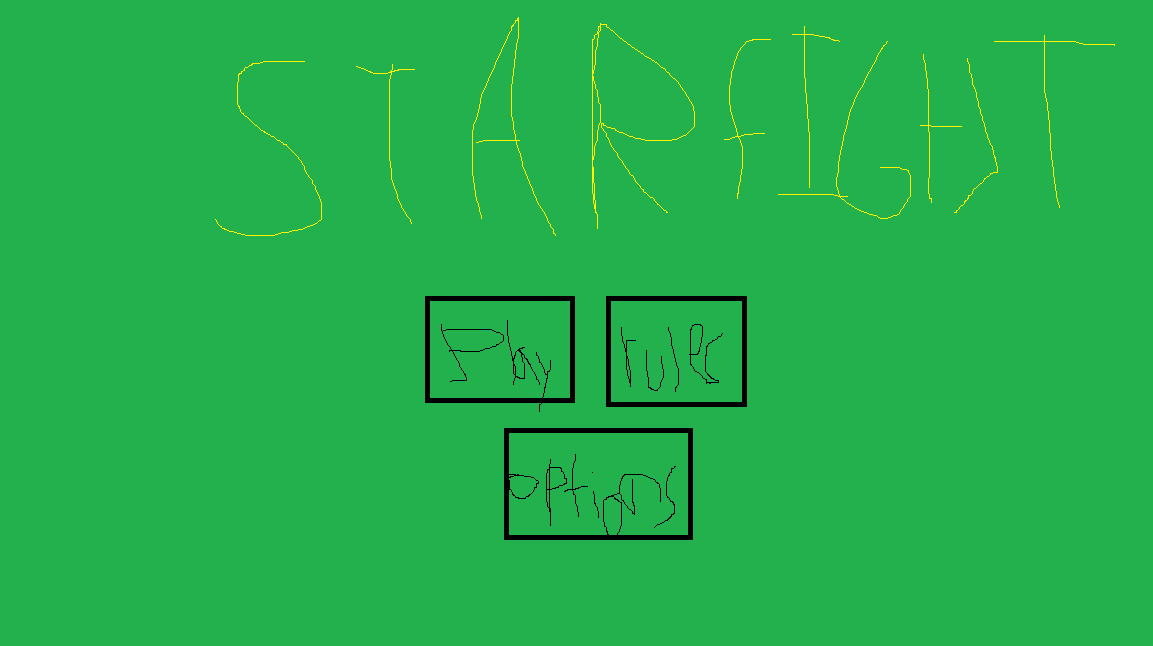 STARFIGHT
Play rules
options